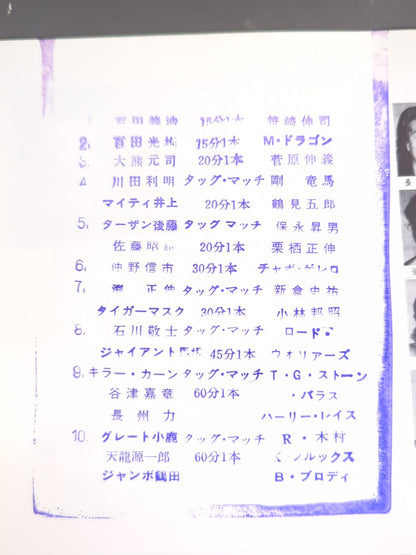 1. 百田義浩 15分1本 笹崎伸司
2. 百田光雄 15分1本 M・ドラゴン
3. 大熊元司 20分1本 菅原伸義
4 川田利明 タッグ・マッチ 剛 竜馬
マイティ井上 20分1本 鶴見五郎
5. ターザン後藤 タッグマッチ 保永昇男
佐藤昭 20分1本 栗栖正伸
6. 仲野信市 30分1本 チャボ・ゲレロ
7. 渕 正伸 タッグ・マッチ 新倉史祐
タイガーマスク 30分1本 小林邦昭
8. 石川敬士 タッグ・マッチ ロード・
ジャイアント馬場 45分1本 ウォリアーズ
9. キラー・カーン タッグ・マッチ T・G・ストーン
谷津嘉章 60分1本 ・バラス
長州 力 ハーリー・レイス
10. グレート小鹿 タッグ・マッチ R・木村
天龍源一郎 60分1本 ブルックス
ジャンボ鶴田 B・ブロディ
長